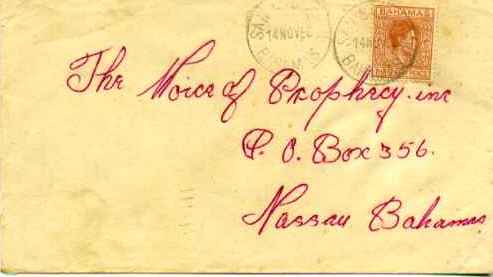 14 NOV
BAHAMAS
14 NOV
BAHAMAS
The Voice of Prophecy. inc
P. O. Box 356.
Nassau Bahamas